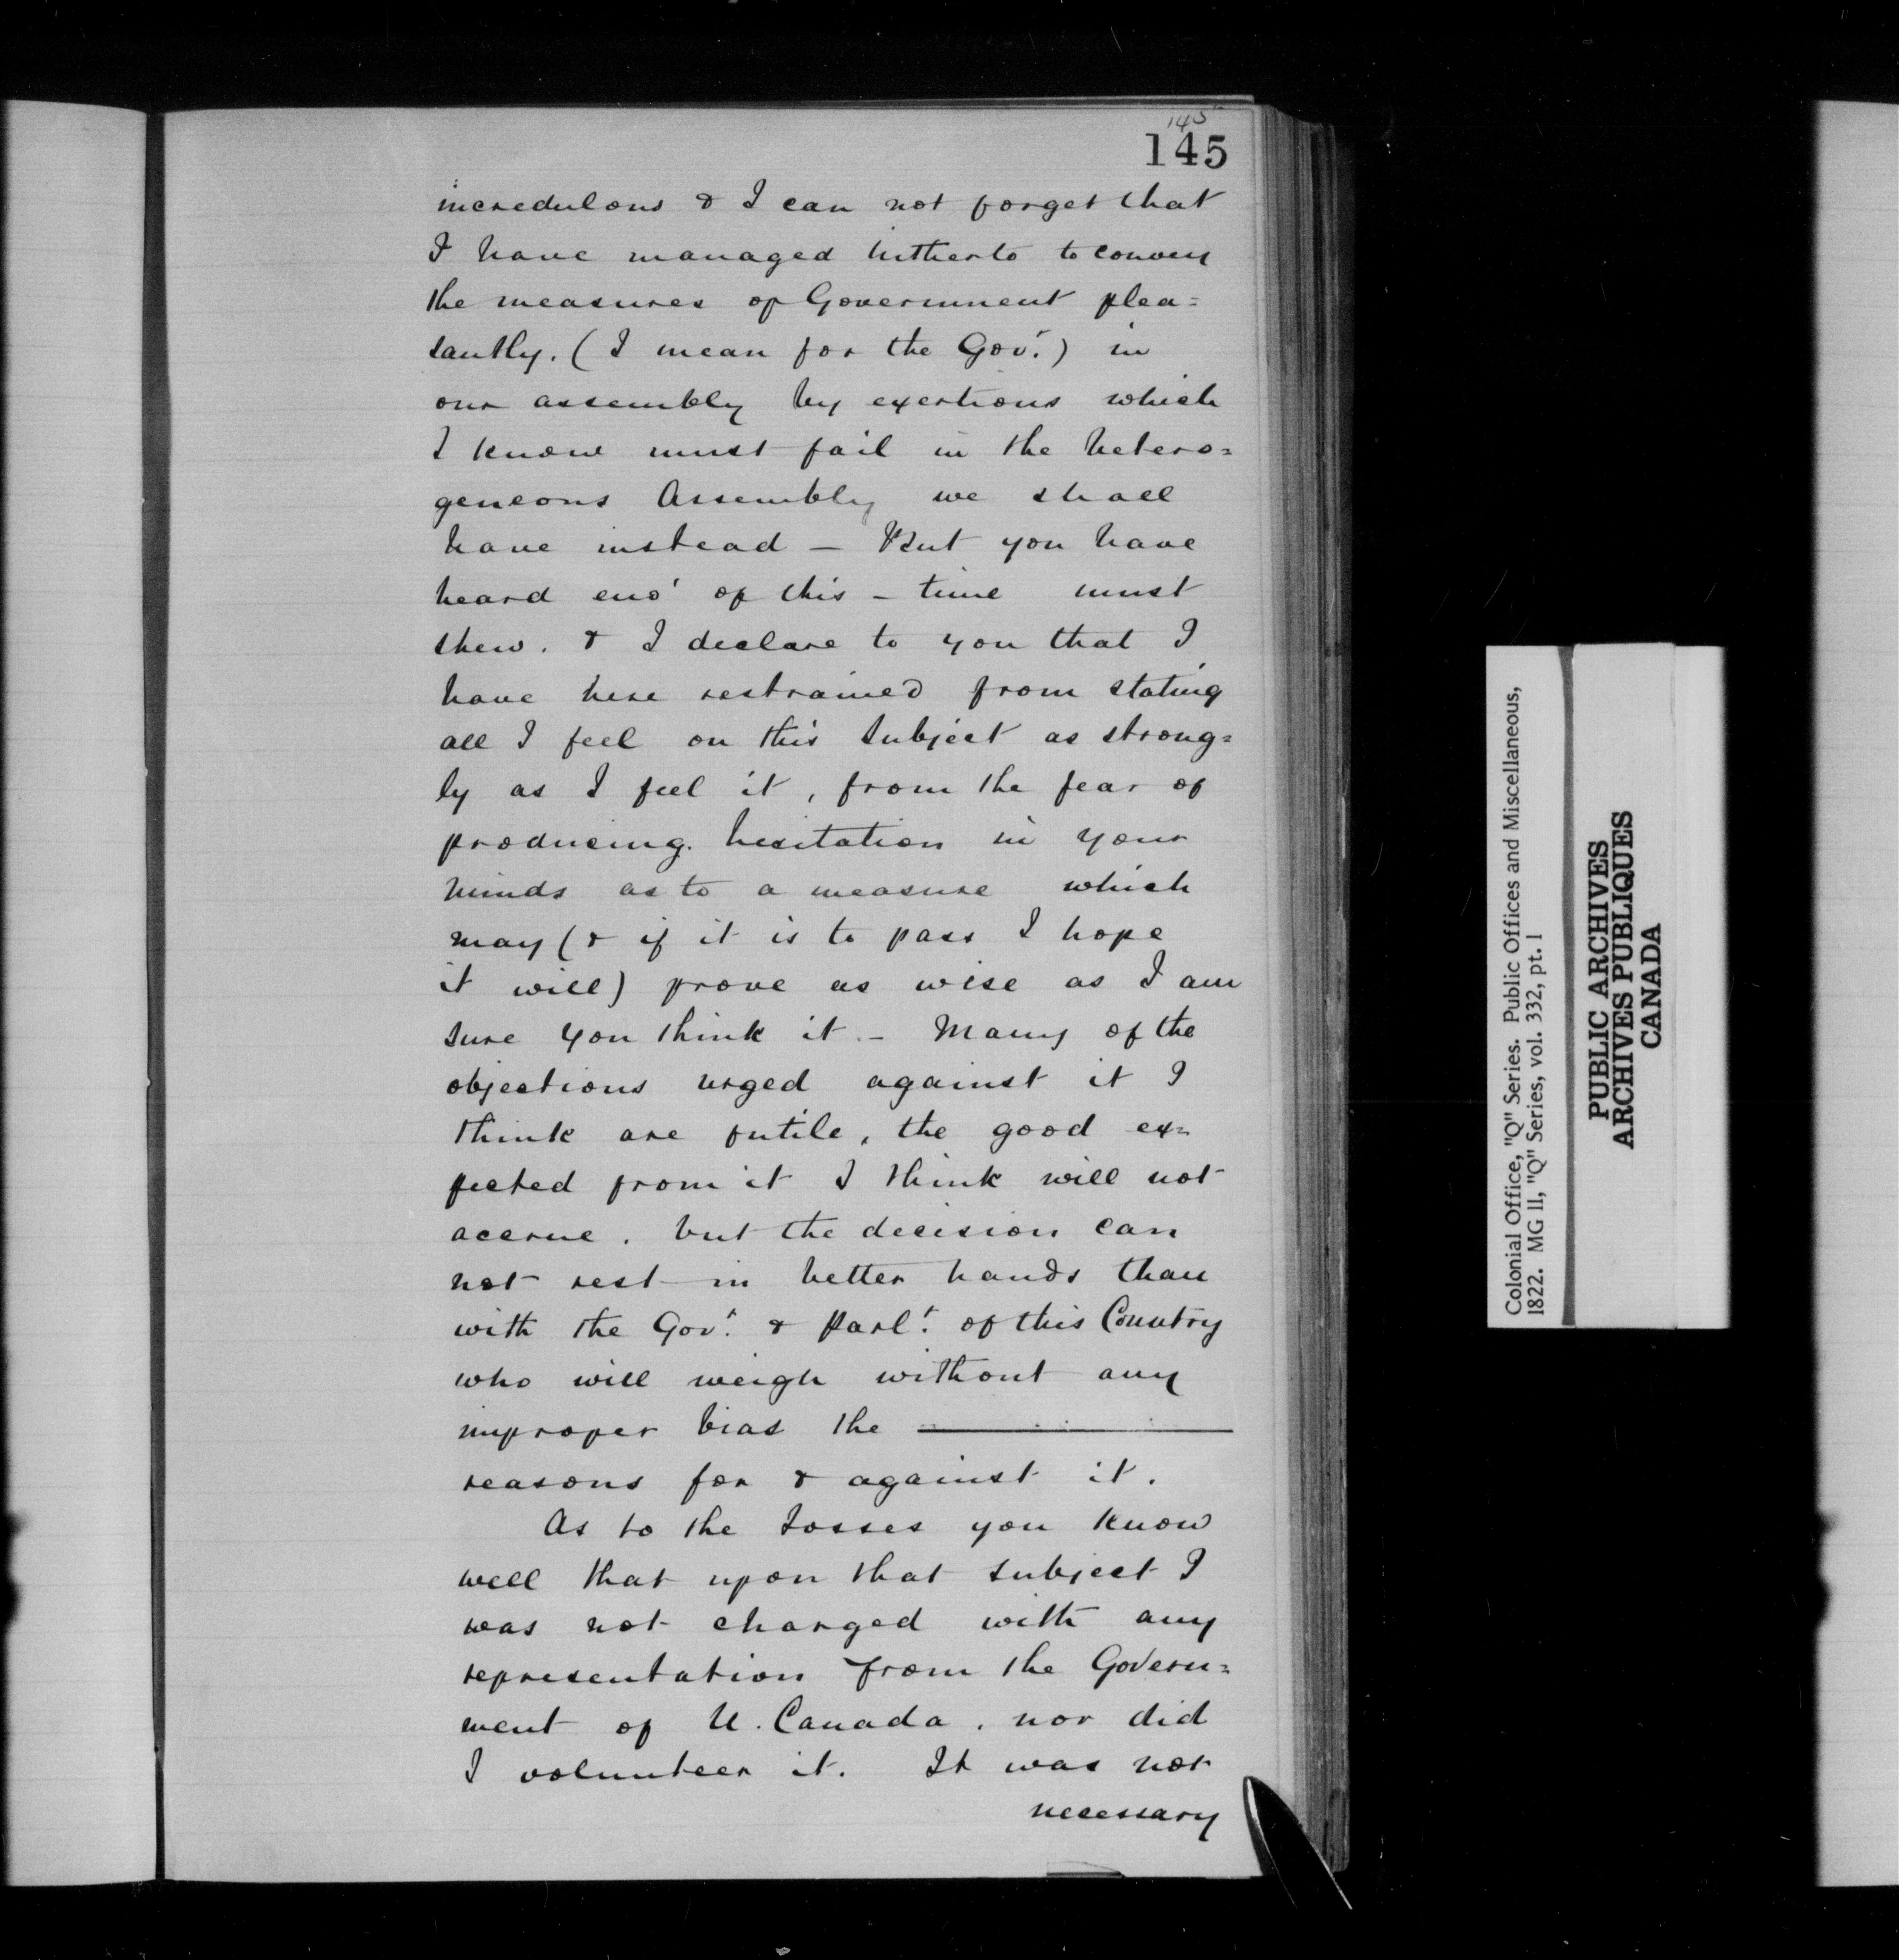 145
145
incredulous & I can not forget that
I have managed hitherto to convey
the measures of Government plea=
santly. (I mean for the Gov.t) in
our assembly by exertions which
I know must fail in the hetero=
geneous Assembly we shall
have instead — But you have
heard eno' of this – time must
shew. & I declare to you that I
have here restrained from stating
all I feel on this subject as strong=
ly as I feel it, from the fear of
producing. hesitation in your
minds as to a measure which
may (& if it is to pass I hope
it will) prove as wise as I am
sure you think it. – Many of the
objections urged against it I
think are futile, the good ex=
pected from it I think will not
accrue. but the decision can
not rest in better hands than
with the Gov.t & Parl.t of this Country
who will weigh without any
improper bias the ————
reasons for & against it.
As to the Losses you know
well that upon that subject I
was not charged with any
representation from the Govern=
ment of U. Canada. nor did
I volunteer it. It was not
necessary
Colonial Office, "Q" Series. Public Offices and Miscellaneous,
1822. MG 11, "Q" Series, vol. 332, pt. 1
PUBLIC ARCHIVES
ARCHIVES PUBLIQUES
CANADA